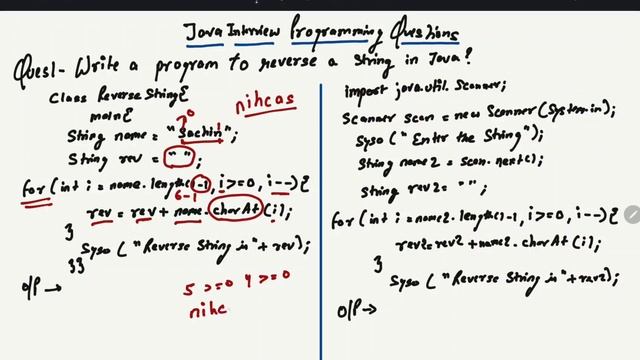 Java Interview Programming Questions
Ques1- Write a program to reverse a string in Java?
Class ReverseString{
main{
String name = "Sachin";
String rev = "";
for(int i = name.length()-1, i>=0, i--){
6-1
rev = rev + name.charAt(i);
}
Syso ("Reverse String is" + rev);
}}
O/P →
nihcas
5 >=0 4 >=0
nihc
import java.util.Scanner;
Scanner scan = new Scanner(System.in);
Syso ("Enter the String");
String name2 = scan.next();
String rev2 = "";
for(int i = name2.length()-1, i>=0, i--){
rev2=rev2+name2.charAt(i);
}
Syso ("Reverse String is"+rev2);
O/P →